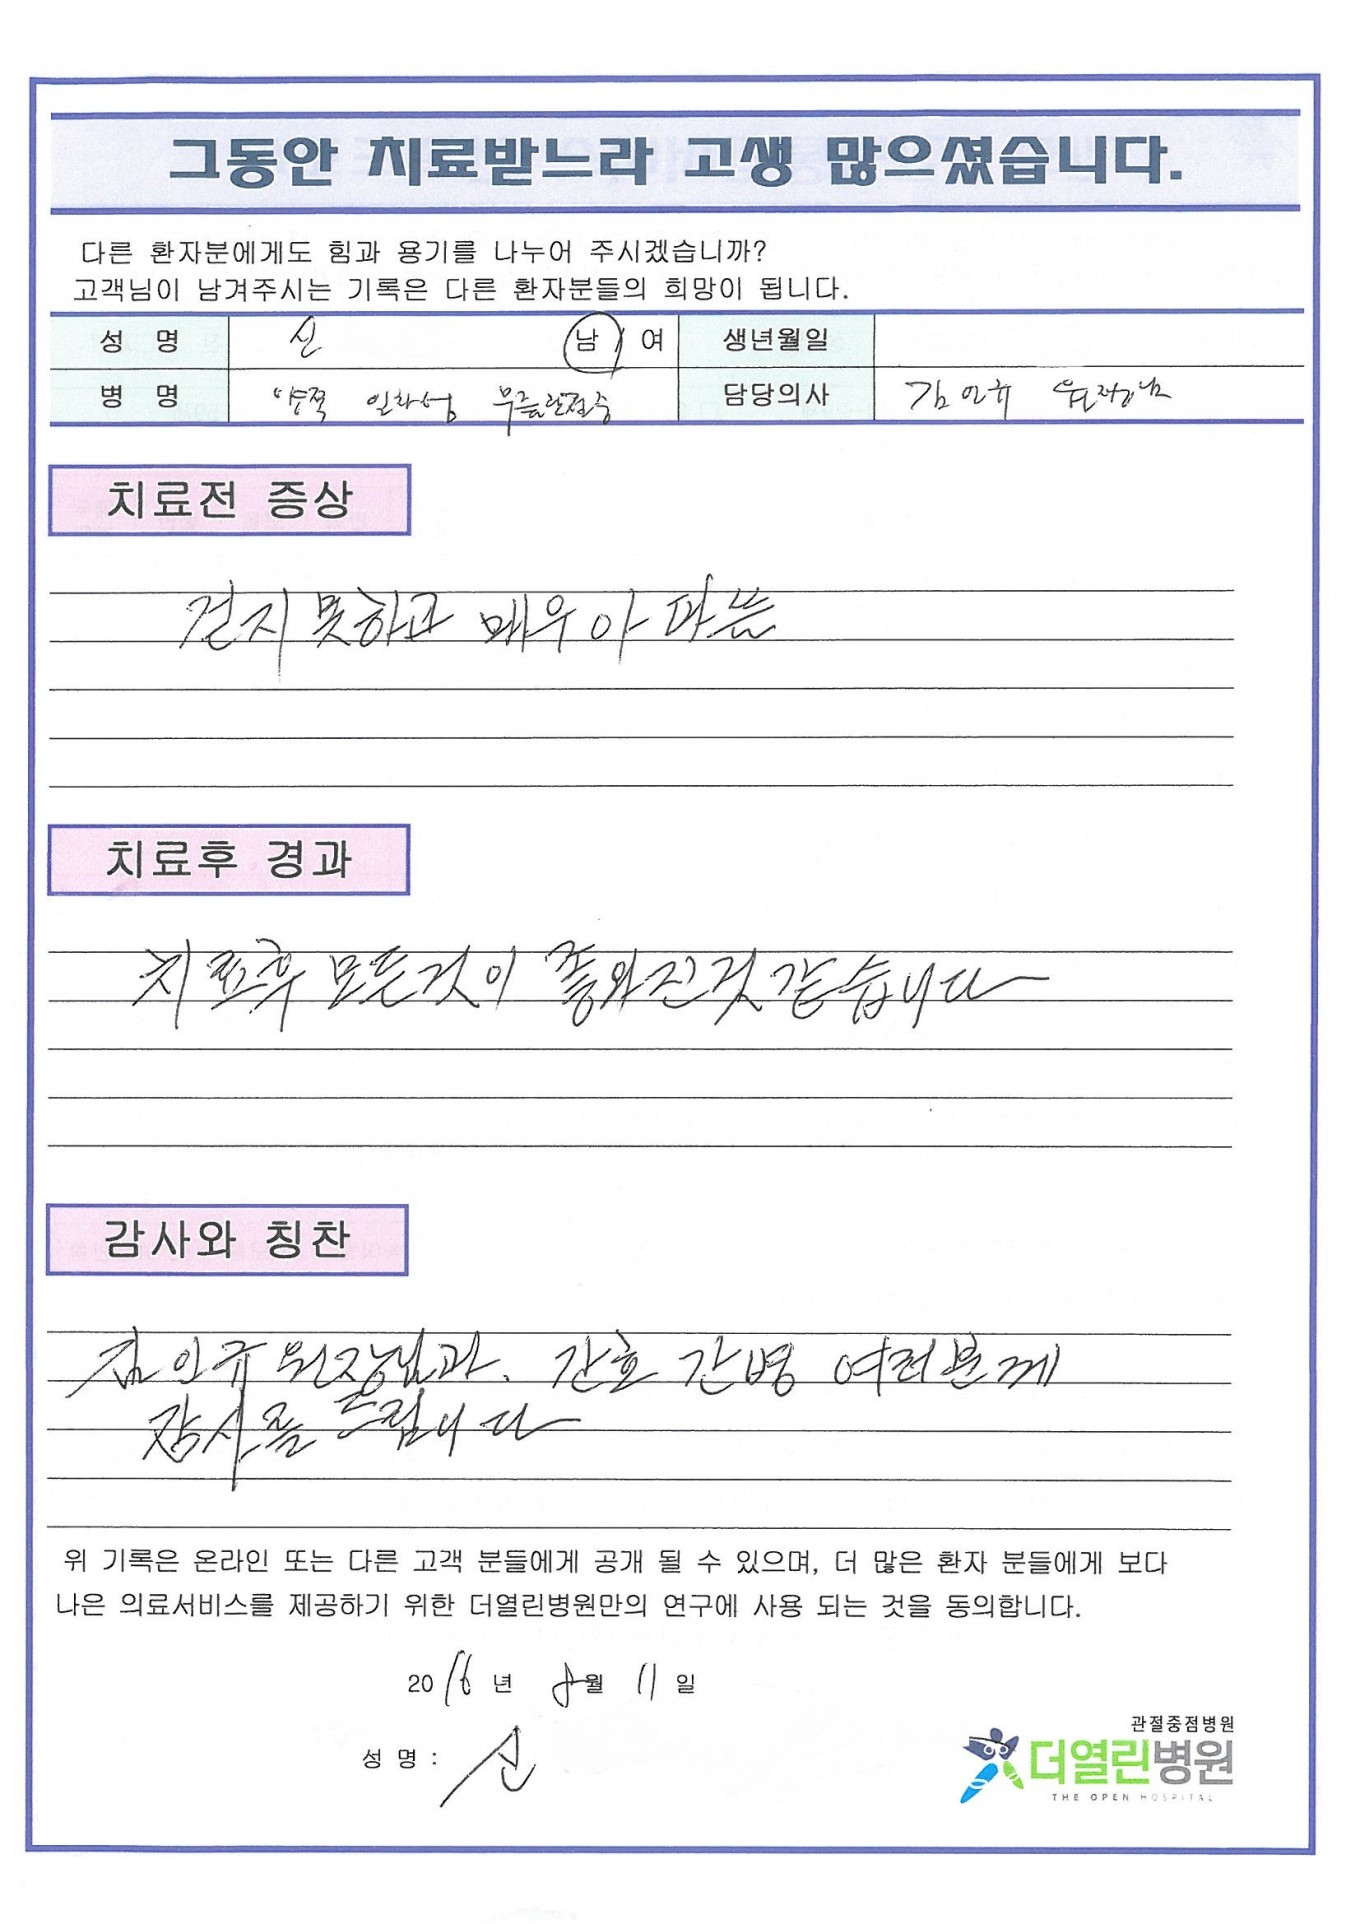 그동안 치료받느라 고생 많으셨습니다.
다른 환자분에게도 힘과 용기를 나누어 주시겠습니까?
고객님이 남겨주시는 기록은 다른 환자분들의 희망이 됩니다.
성 명 신 남 / 여 생년월일
병 명 양쪽 일차성 무릎관절증 담당의사 김인규 원장님
치료전 증상
걷지 못하고 매우 아파뜸
치료후 경과
치료후 모든것이 좋와진것 같습니다
감사와 칭찬
김인규 원장님과. 간호 간병 여러분께
감사를 드립니다
위 기록은 온라인 또는 다른 고객 분들에게 공개 될 수 있으며, 더 많은 환자 분들에게 보다
나은 의료서비스를 제공하기 위한 더열린병원만의 연구에 사용 되는 것을 동의합니다.
2016년 8월 11일
성 명 : 신
관절중점병원
더열린병원
THE OPEN HOSPITAL